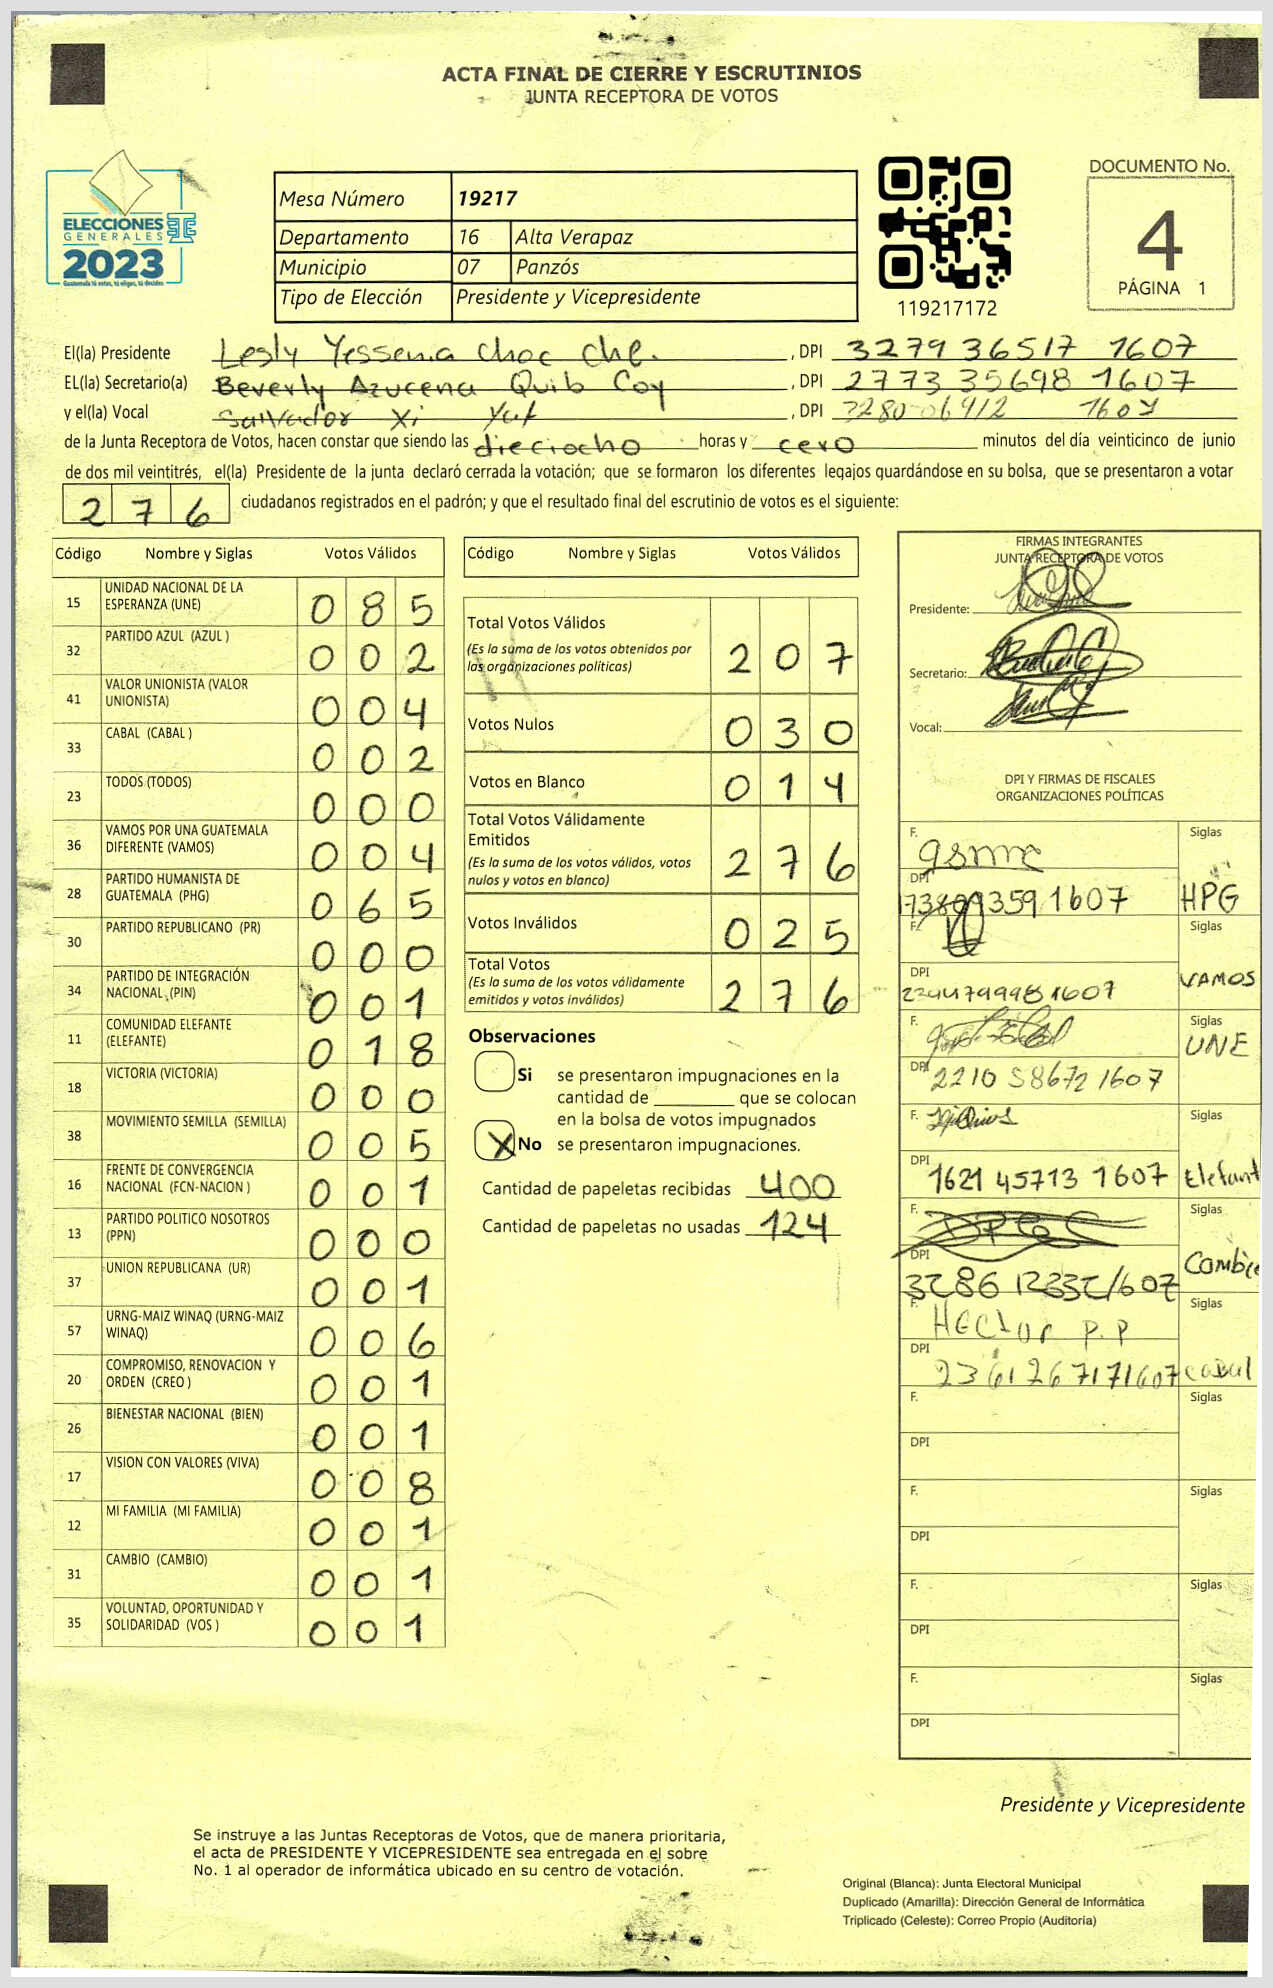 ACTA FINAL DE CIERRE Y ESCRUTINIOS
JUNTA RECEPTORA DE VOTOS
ELECCIONES
GENERALES
2023
Mesa Número 19217
Departamento 16 Alta Verapaz
Municipio 07 Panzós
Tipo de Elección Presidente y Vicepresidente
119217172
DOCUMENTO No.
4
PÁGINA 1
El(la) Presidente Lesly Yessenia Choc Che. , DPI 3279 36517 1607
EL(la) Secretario(a) Beverly Azucena Quib Coy , DPI 2773 35698 1607
y el(la) Vocal Salvador Xi Yat , DPI 3280 06912 1607
de la Junta Receptora de Votos, hacen constar que siendo las dieciocho horas y cero minutos del día veinticinco de junio
de dos mil veintitrés, el(la) Presidente de la junta declaró cerrada la votación; que se formaron los diferentes legajos guardándose en su bolsa, que se presentaron a votar
276 ciudadanos registrados en el padrón; y que el resultado final del escrutinio de votos es el siguiente:
Código Nombre y Siglas Votos Válidos
15 UNIDAD NACIONAL DE LA ESPERANZA (UNE) 085
32 PARTIDO AZUL (AZUL ) 002
41 VALOR UNIONISTA (VALOR UNIONISTA) 004
33 CABAL (CABAL ) 002
23 TODOS (TODOS) 000
36 VAMOS POR UNA GUATEMALA DIFERENTE (VAMOS) 004
28 PARTIDO HUMANISTA DE GUATEMALA (PHG) 065
30 PARTIDO REPUBLICANO (PR) 000
34 PARTIDO DE INTEGRACIÓN NACIONAL (PIN) 001
11 COMUNIDAD ELEFANTE (ELEFANTE) 018
18 VICTORIA (VICTORIA) 000
38 MOVIMIENTO SEMILLA (SEMILLA) 005
16 FRENTE DE CONVERGENCIA NACIONAL (FCN-NACION ) 001
13 PARTIDO POLITICO NOSOTROS (PPN) 000
37 UNION REPUBLICANA (UR) 001
57 URNG-MAIZ WINAQ (URNG-MAIZ WINAQ) 006
20 COMPROMISO, RENOVACION Y ORDEN (CREO ) 001
26 BIENESTAR NACIONAL (BIEN) 001
17 VISION CON VALORES (VIVA) 008
12 MI FAMILIA (MI FAMILIA) 001
31 CAMBIO (CAMBIO) 001
35 VOLUNTAD, OPORTUNIDAD Y SOLIDARIDAD (VOS ) 001
Código Nombre y Siglas Votos Válidos
Total Votos Válidos
(Es la suma de los votos obtenidos por
las organizaciones politicas) 207
Votos Nulos 030
Votos en Blanco 014
Total Votos Válidamente
Emitidos
(Es la suma de los votos válidos, votos
nulos y votos en blanco) 276
Votos Inválidos 025
Total Votos
(Es la suma de los votos válidamente
emitidos y votos inválidos) 276
Observaciones
Si se presentaron impugnaciones en la
cantidad de ________ que se colocan
en la bolsa de votos impugnados
X No se presentaron impugnaciones.
Cantidad de papeletas recibidas 400
Cantidad de papeletas no usadas 124
FIRMAS INTEGRANTES
JUNTA RECEPTORA DE VOTOS
Presidente:
Secretario:
Vocal:
DPI Y FIRMAS DE FISCALES
ORGANIZACIONES POLÍTICAS
F. Siglas
DPI 359 1607 HPG
F. Siglas
DPI VAMOS
2244799981607
F. Siglas
UNE
DPI 2210 58672 1607
F. Siglas
DPI 1621 45713 1607 Elefant
F. Siglas
DPI
3286 12332/607
F. HECtor P.P Siglas
DPI 2361267171607 cabal
F. Siglas
DPI
F. Siglas
DPI
F. Siglas
DPI
F. Siglas
DPI
Presidente y Vicepresidente
Se instruye a las Juntas Receptoras de Votos, que de manera prioritaria,
el acta de PRESIDENTE Y VICEPRESIDENTE sea entregada en el sobre
No. 1 al operador de informática ubicado en su centro de votación.
Original (Blanca): Junta Electoral Municipal
Duplicado (Amarilla): Dirección General de Informática
Triplicado (Celeste): Correo Propio (Auditoría)